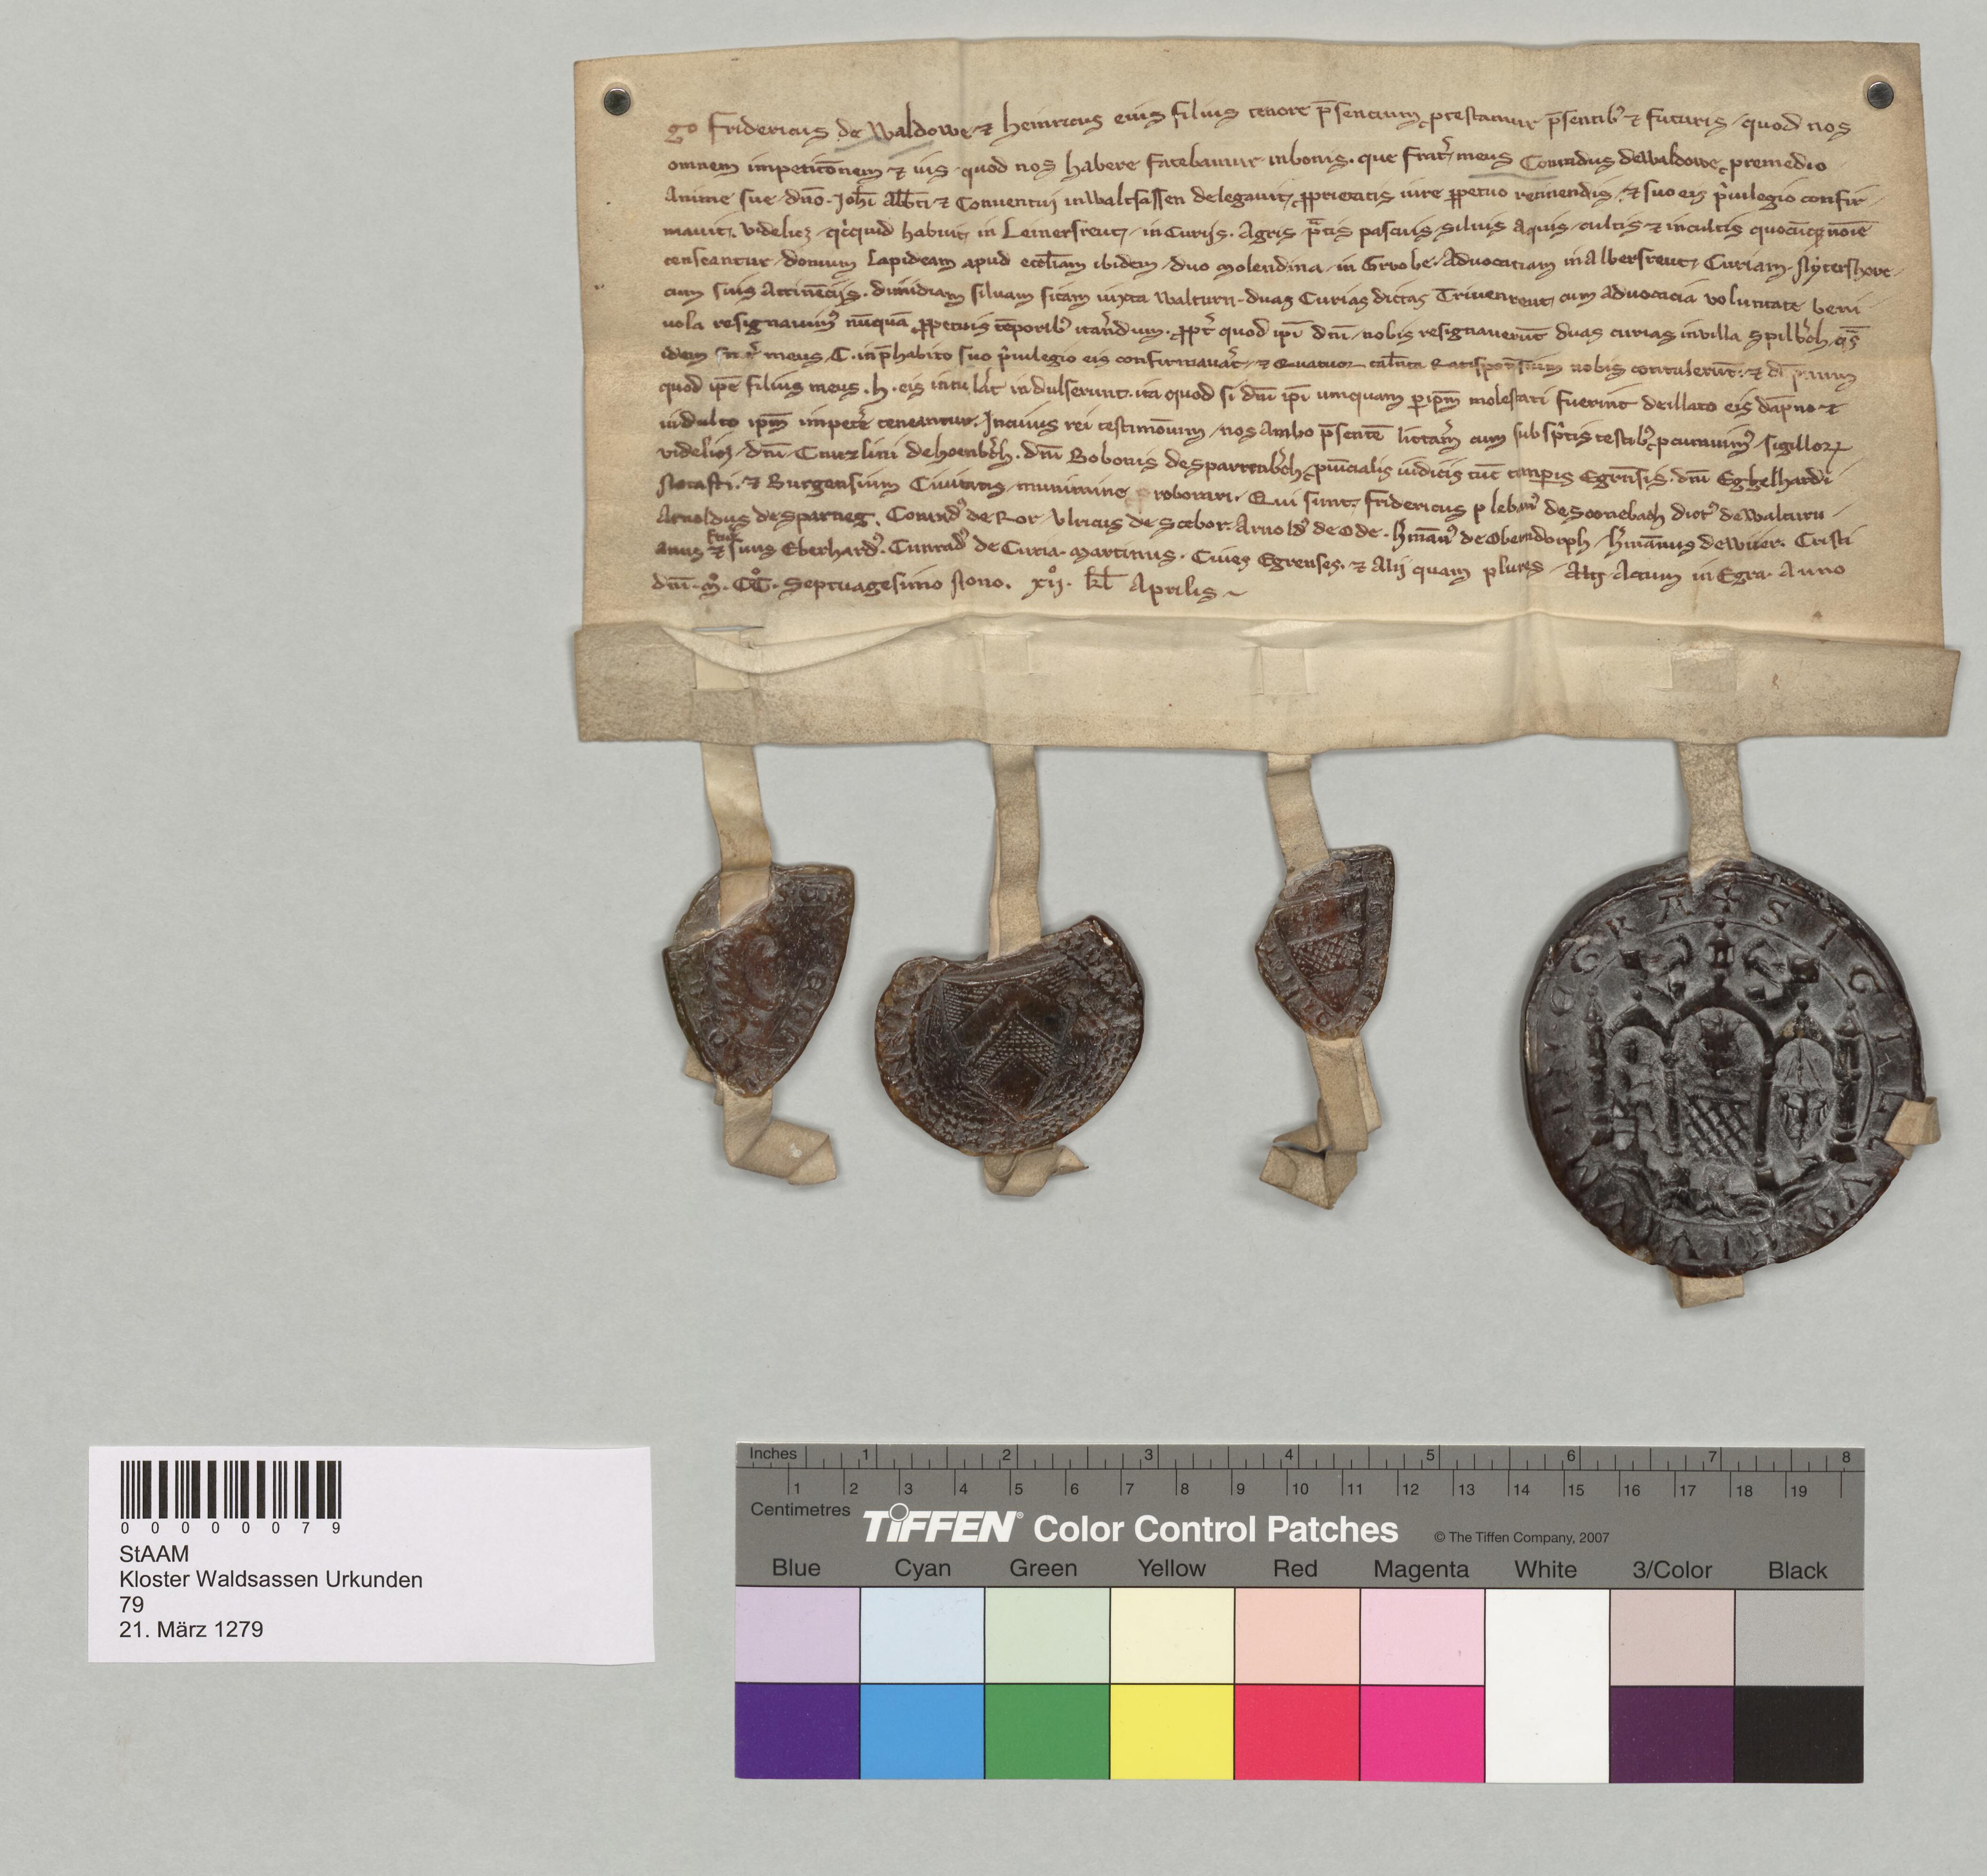 go Fridericus de Waldowe ⁊ Heinricus eius filius tenore p̄sencium ꝓtestamur p̄sentibꝰ ⁊ futuris / quod nos
omnem impeticōnem ⁊ ius quod nos habere fatebamur in bonis. que frat̓ meus Conradus de Waldowe, ꝓ remedio
anime sue dn̄o. Joh̄i Abb̄ti ⁊ Conventuj in Waltsassen delegavit, ꝓprietatis iure ꝑpetuo retinendis, ⁊ suo eis p̓uilegio confir
mauit. videlicꝫ quicquid habuit in Leinersreut, in Curijs. Agris p̄tis pascuis siluis aquis cultis ⁊ incultis quocūcqꝫ noīe
censeantur / domum lapideam apud eccl̄iam ibidem / duo molendina in Gruobe. Aduocatiam in Albersreut, Curiam
cum suis attinēcijs. dimidiam siluam sitam iuxta Walturn. duas Curias dictas Triuenreut, cum aduocacia voluntate beni
uola resignauimꝰ nūquā ꝑpetuis tēporibꝰ it̓andum. ꝓpt̓ quod ip̄i dn̄i nobis resignauerūt duas curias in villa Spilb̓ch. q̄s
idem frat̓ meus. C. in p̄habito suo p̓uilegio eis confirmauat̓ ⁊ Quatuor tal̄nta Ratispon̄sium nobis contulerūt: ⁊
quod ip̄e filius meus. h. eis intulat̓ indulserunt. ita quod si dn̄i ip̄i umquam ꝑ ip̄m molestati fuerint de illato eis dāpno ⁊
indulto ip̄m impet̓e teneantur. In cuius rei testimōium / nos ambo p̄sentē litt̓am cum subsp̓tis testibꝰ ꝓcurauimꝰ / sigilloꝝ
videlicꝫ dn̄i Cnuzlini de Hoenb̓ch. dn̄i Bobonis de Sparrenb̓ch, ꝓuīcialis iudicis tūc temꝑis Egrēsis. dn̄i Egkelhardi
Notafti. ⁊ Burgensium Ciuitatis munimine roborari. Qui sunt. Fridericus plebanꝰ de Scornebach dictꝰ de Walturn
Arnoldus de Sparneg. Conradꝰ de Ror Vlricus de Scebor. Arnoldꝰ de Ode. h̓mānꝰ de Oberndorph / h̓mānus de Wiier. Cristi
anus ⁊ frater suus Eberhardꝰ. Cunradꝰ de Curia. Martinus. Ciues Egrenses. ⁊ Alij quam plures Actum in Egra. Anno
dn̄i. M̊. CC̊. Septuagesimo Nono. xij̊. kl̄ Aprilis
SIGILLVM
EGRA
0 0 0 0 0 0 7 9
StAAM
Kloster Waldsassen Urkunden
79
21. März 1279
Inches 1 2 3 4 5 6 7 8
1 2 3 4 5 6 7 8 9 10 11 12 13 14 15 16 17 18 19
Centimetres
TIFFEN® Color Control Patches © The Tiffen Company, 2007
Blue Cyan Green Yellow Red Magenta White 3/Color Black